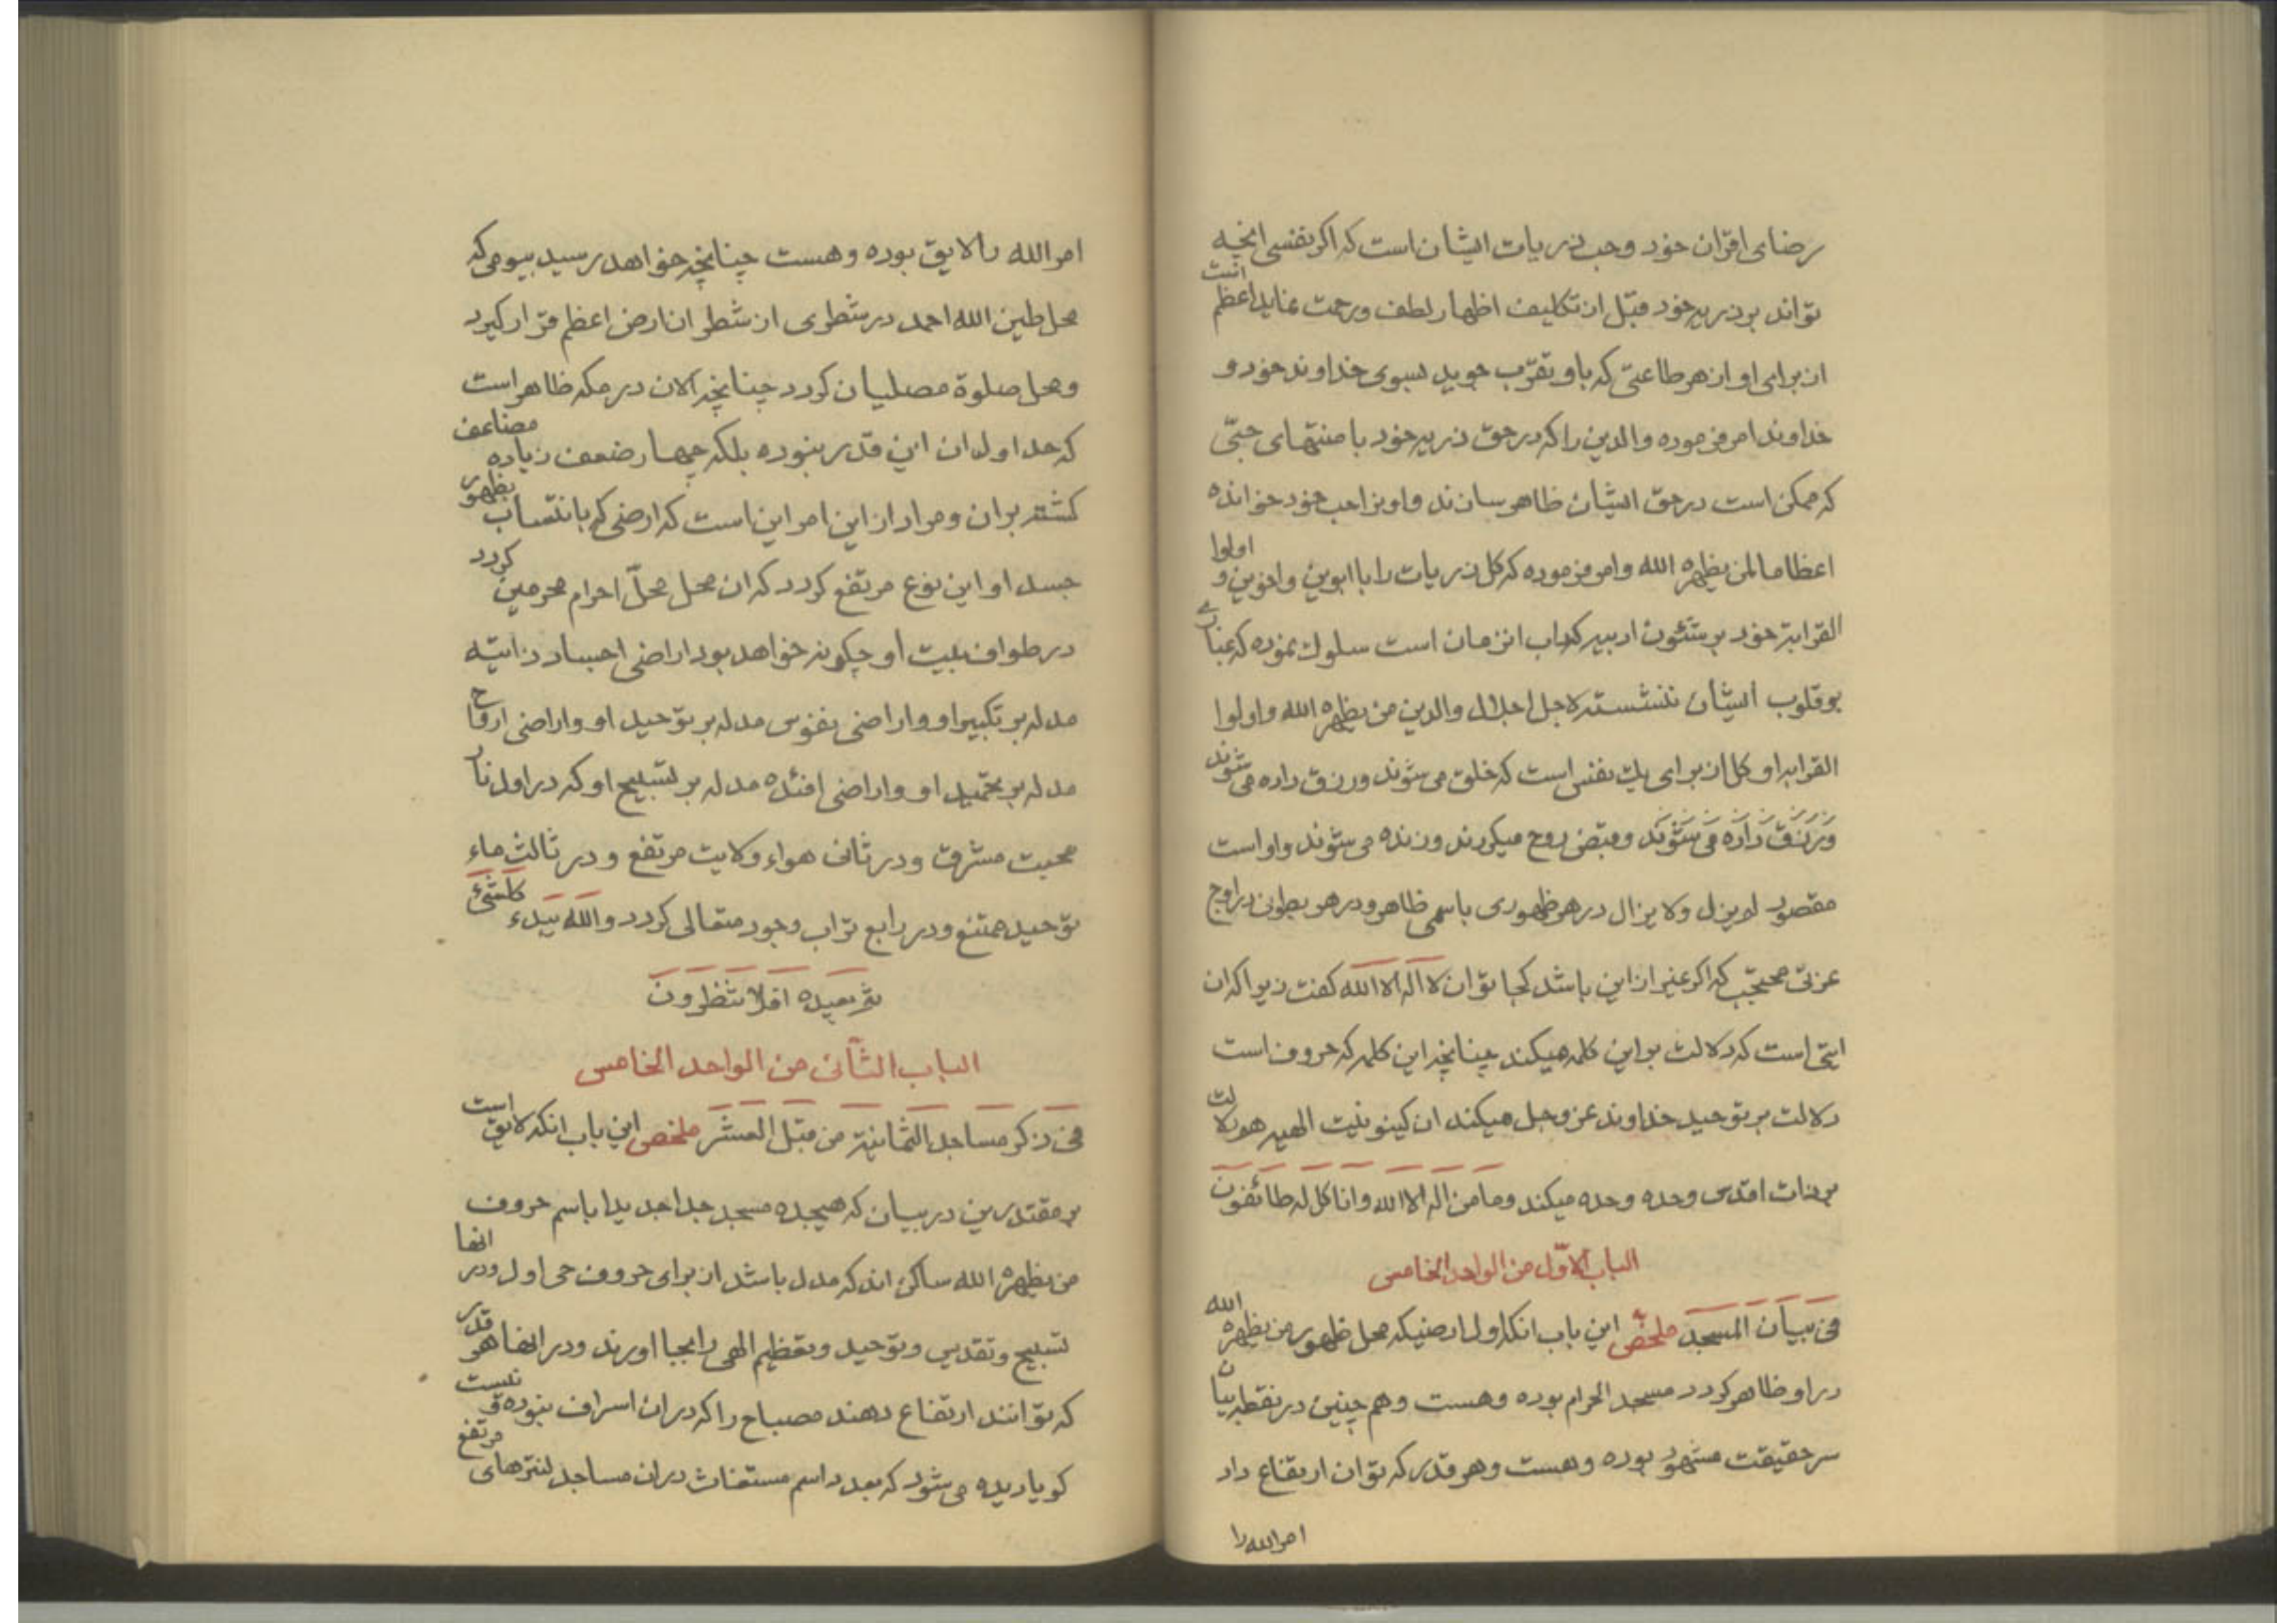 رضای اقران خود وحب ذریات ایشان است که اکر نفسی انچه
تواند بر ذریه خود قبل از تکلیف اظهار لطف ورحمت نماید اعظم است
از برای او از هر طاعتی که باو تقرب جوید بسوی خداوند خود و
خداوند امر فرموده والدین را که در حق ذریه خود با منتهای حبی
که ممکن است در حق ایشان ظاهر سازند واونرا حب خود خوانده
اعظاما لمن یظهره الله وامر فرموده که کل ذریات را با ابوین واخوین و اولوا
القرابة خود بر شئون ادبیه که داب انزمان است سلوك نموده که غباری
بر قلوب ایشان ننشسته لاجل اجلال والدین من یظهره الله واولوا
القرابه او کل از برای یك نفس است که خلق می شوند ورزق داده می شوند
ورزق داده می شوند وقبض روح میکردند وزنده می شوند واو است
مقصود لم یزل ولا یزال در هر ظهوری باسمی ظاهر ودر هر بطونی در اوج
عزتی محتجب که اکر غیر از این باشد کجا توان لا اله الا الله کفت زیرا که ان
ایتی است که دلالت بر این کلمه میکند چنانچه این کلمه که حروف است
دلالت بر توحید خداوند عز وجل میکند ان کینونیت الهیه هم دلالت
بر ذات اقدس وحده وحده میکند وما من اله الا الله وانا کل له طائفون
الباب الاول من الواحد الخامس
فی بیان المسجد ملخص این باب انکه اول ارضیکه محل ظهور من یظهره الله
در او ظاهر کردد مسجد الحرام بوده وهست وهم چنین در نقطه بیان
سر حقیقت مشهود بوده وهست وهر قدر که توان ارتفاع داد
امر الله را
امر الله را لایق بوده وهست چنانچه خواهد رسید بیومی که
محل طین الله احمد در شطری از شطر ان ارض اعظم قرار کیرد
ومحل صلوة مصلیان کردد چنانچه الان در مکه ظاهر است
که حد اول ان این قدر نبوده بلکه چهار ضعف زیاده مضاعف
کشته بر ان ومراد از این امر این است که ارضی که بانتساب بظهور
جسد او این نوع مرتفع کردد که ان محل محل احرام محرمین کردد
در طواف بیت او چکونه خواهد بود اراضی اجساد ذاتیه
مدله بر تکبیر او واراضی نفوس مدله بر توحید او واراضی ارواح
مدله بر تحمید او واراضی افئده مدله بر تسبیح او که در اول نار
محبت مشرق ودر ثانی هواء ولایت مرتفع ودر ثالث ماء
توحید ممتنع ودر رابع تراب وجود متعالی کردد والله یبدء کلشئ
ثم یعیده افلا تنظرون
الباب الثانی من الواحد الخامس
فی ذکر مساجد الثمانیة من قبل العشر ملخص این باب انکه لایق است
بر مقتدرین در بیان که هیجده مسجد جدا جدیدا باسم حروف
من یظهره الله ساکن اند که مدل باشد از برای حروف حی اول ودر انها
تسبیح وتقدیس وتوحید وتعظیم الهی را بجا اورند ودر انها هر قدر
که توانند ارتفاع دهند مصباح را که در ان اسراف نبوده و نیست
کویا دیده می شود که بعدد اسم مستغاث در ان مساجد لنترهای مرتفع